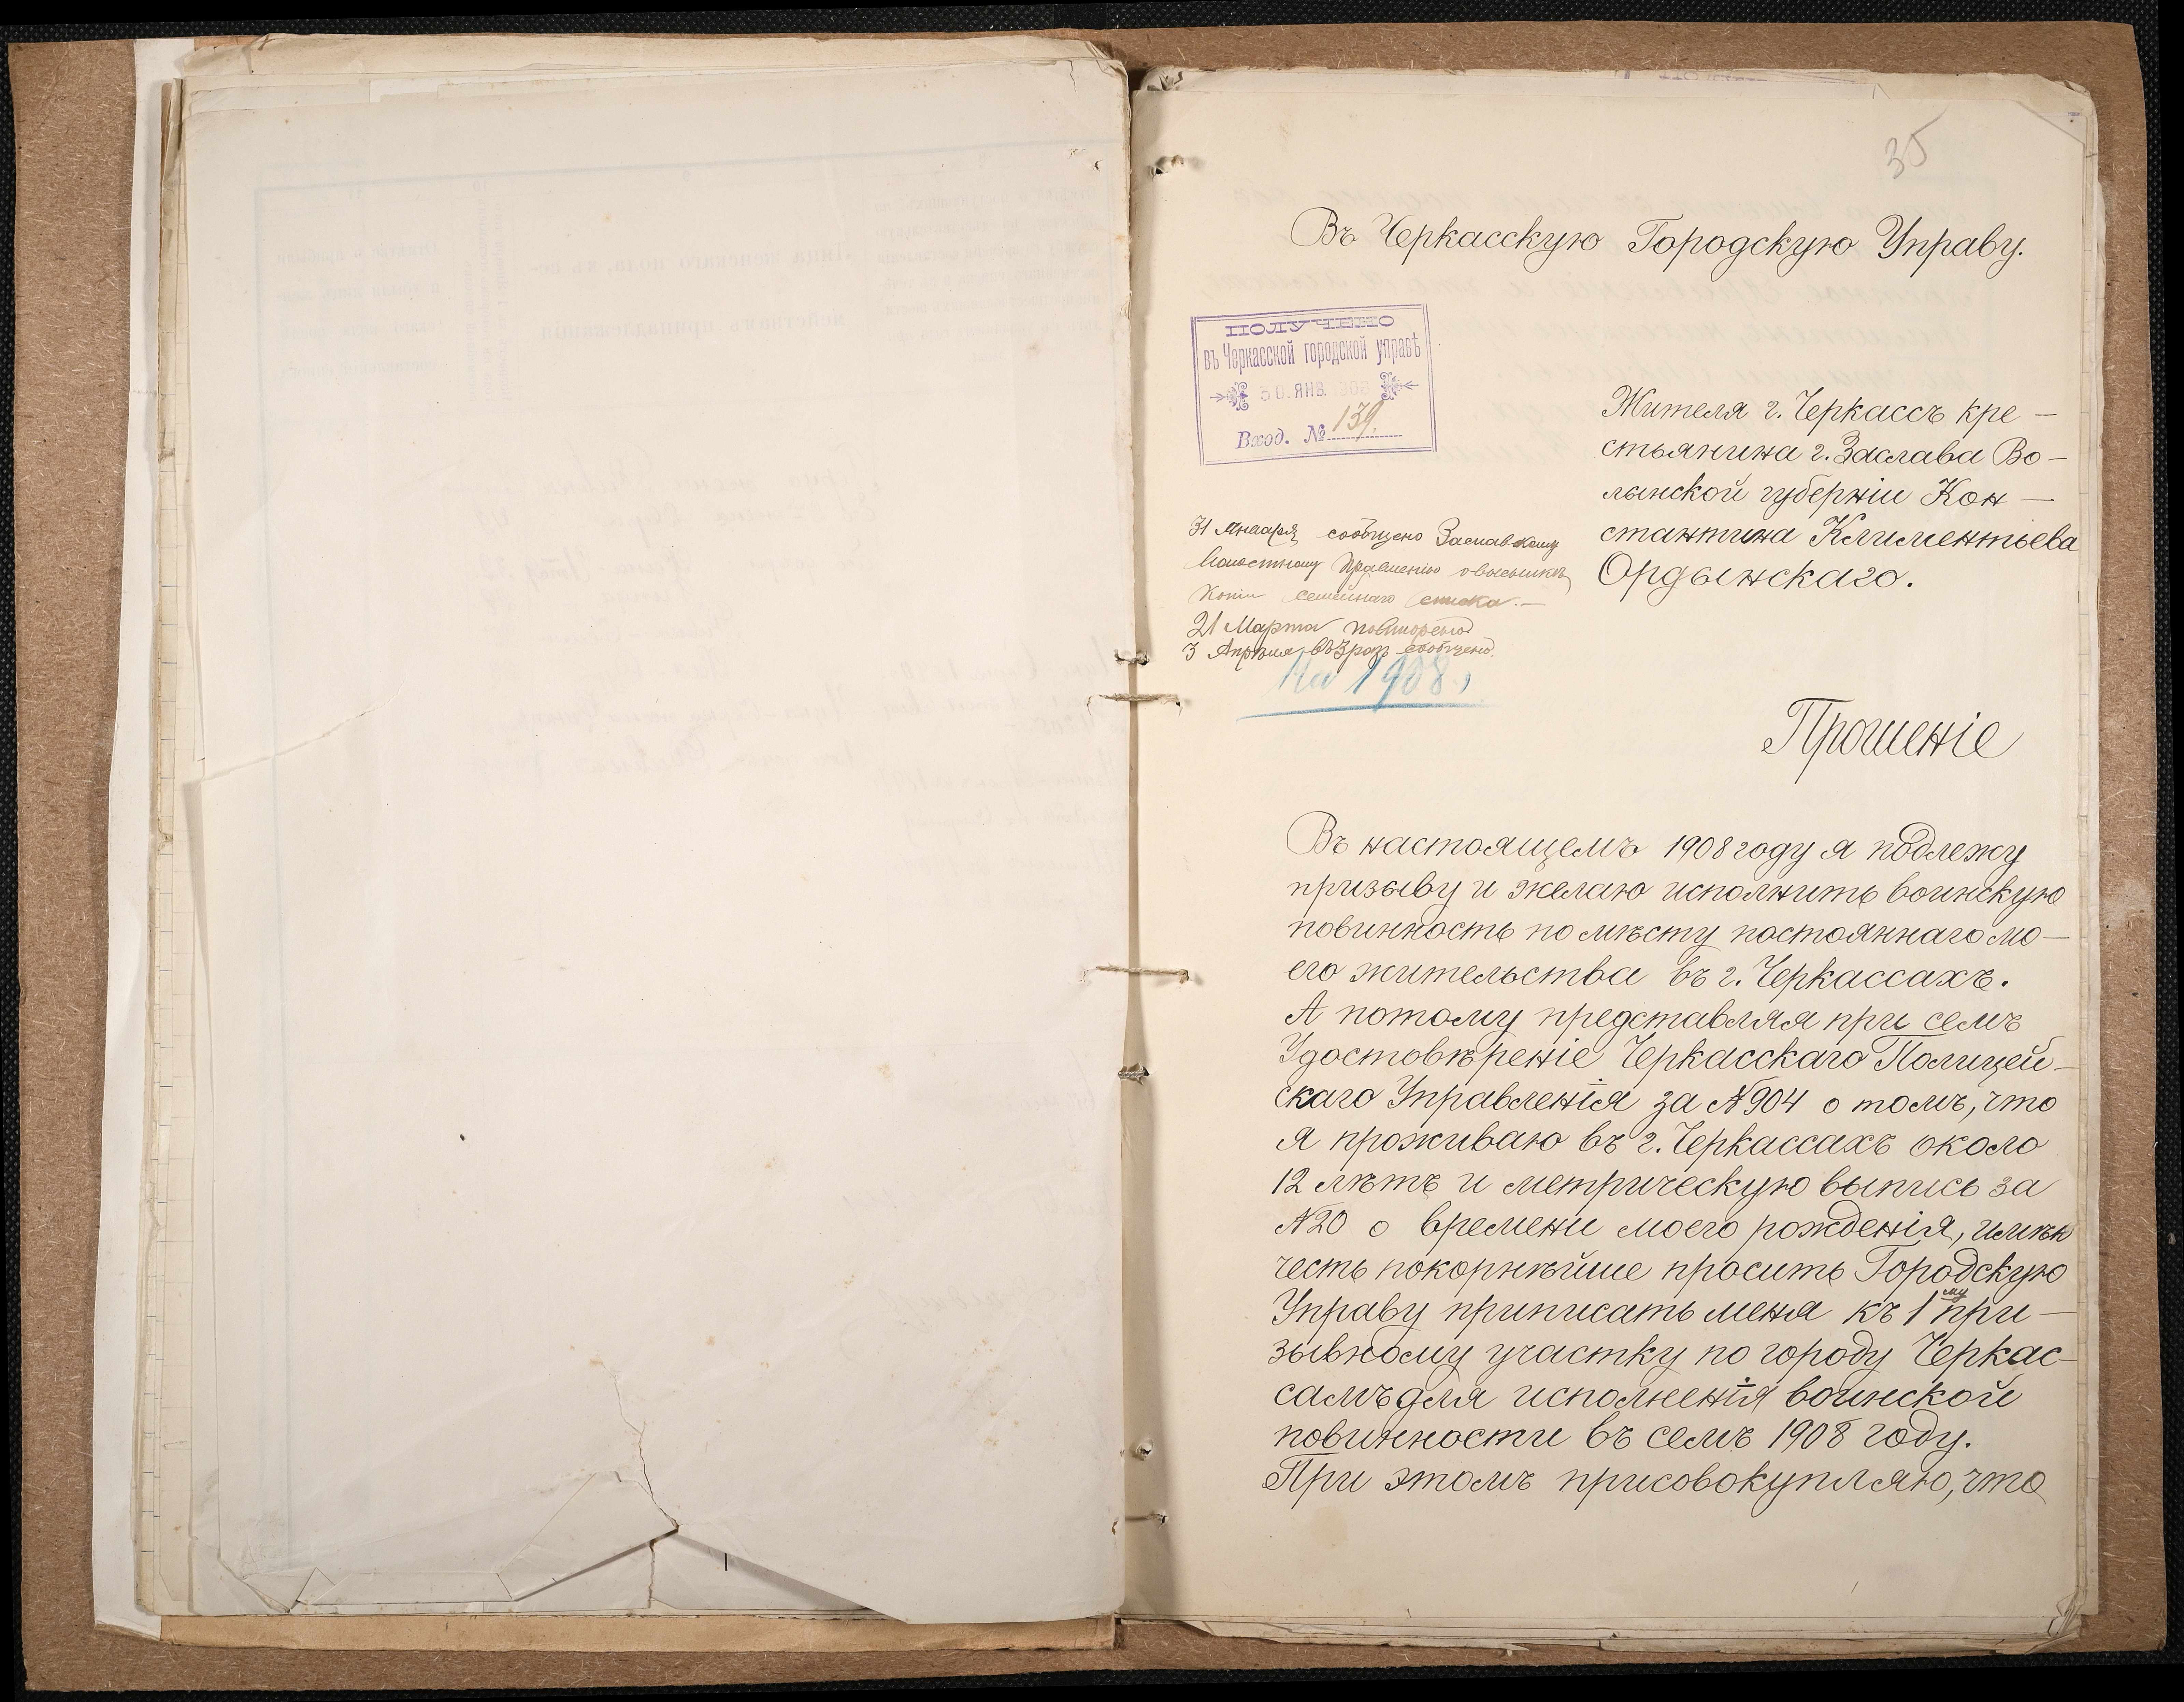 35
Въ Черкасскую Городскую Управу.
ПОЛУЧЕНО
въ Черкасской городской управѣ
30 ЯНВ. 1908
Вход. № 139.
Жителя г. Черкассъ кре-
стьянина г. Заслава Во-
лынской губерніи Кон-
стантина Климентьева
Ордынскаго.
31 Января сообщено Заславскому
Волостному Правленію о высылкѣ
копіи семейнаго списка.-
21 Марта повторено
3 Апрѣля въ 3 разъ сообщено.
На 1908 г.
Прошеніе
Въ настоящемъ 1908 году я подлежу
призыву и желаю исполнить воинскую
повинность по мѣсту постояннаго мо-
его жительства въ г. Черкассахъ.
А потому представляя при семъ
Удостовѣреніе Черкасскаго Полицей-
скаго Управленія за №904 о томъ, что
я проживаю въ г. Черкассахъ около
12 лѣтъ и метрическую выпись за
№20 о времени моего рожденія, имѣю
честь покорнѣйше просить Городскую
Управу приписать меня къ 1му при-
зывному участку по городу Черкас-
самъ для исполненія воинской
повинности въ семъ 1908 году.
При этомъ присовокупляю, что